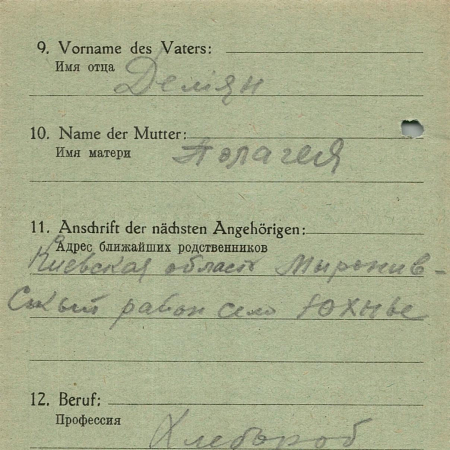 9. Vorname des Vaters:
Имя отца
Демян
10. Name der Mutter:
Имя матери
Полагея
11. Anschrift der nächsten Angehörigen:
Адрес ближайших родственников
Киевская область Миронив-
ськый район село Юхны
12. Beruf:
Профессия
Хлебороб